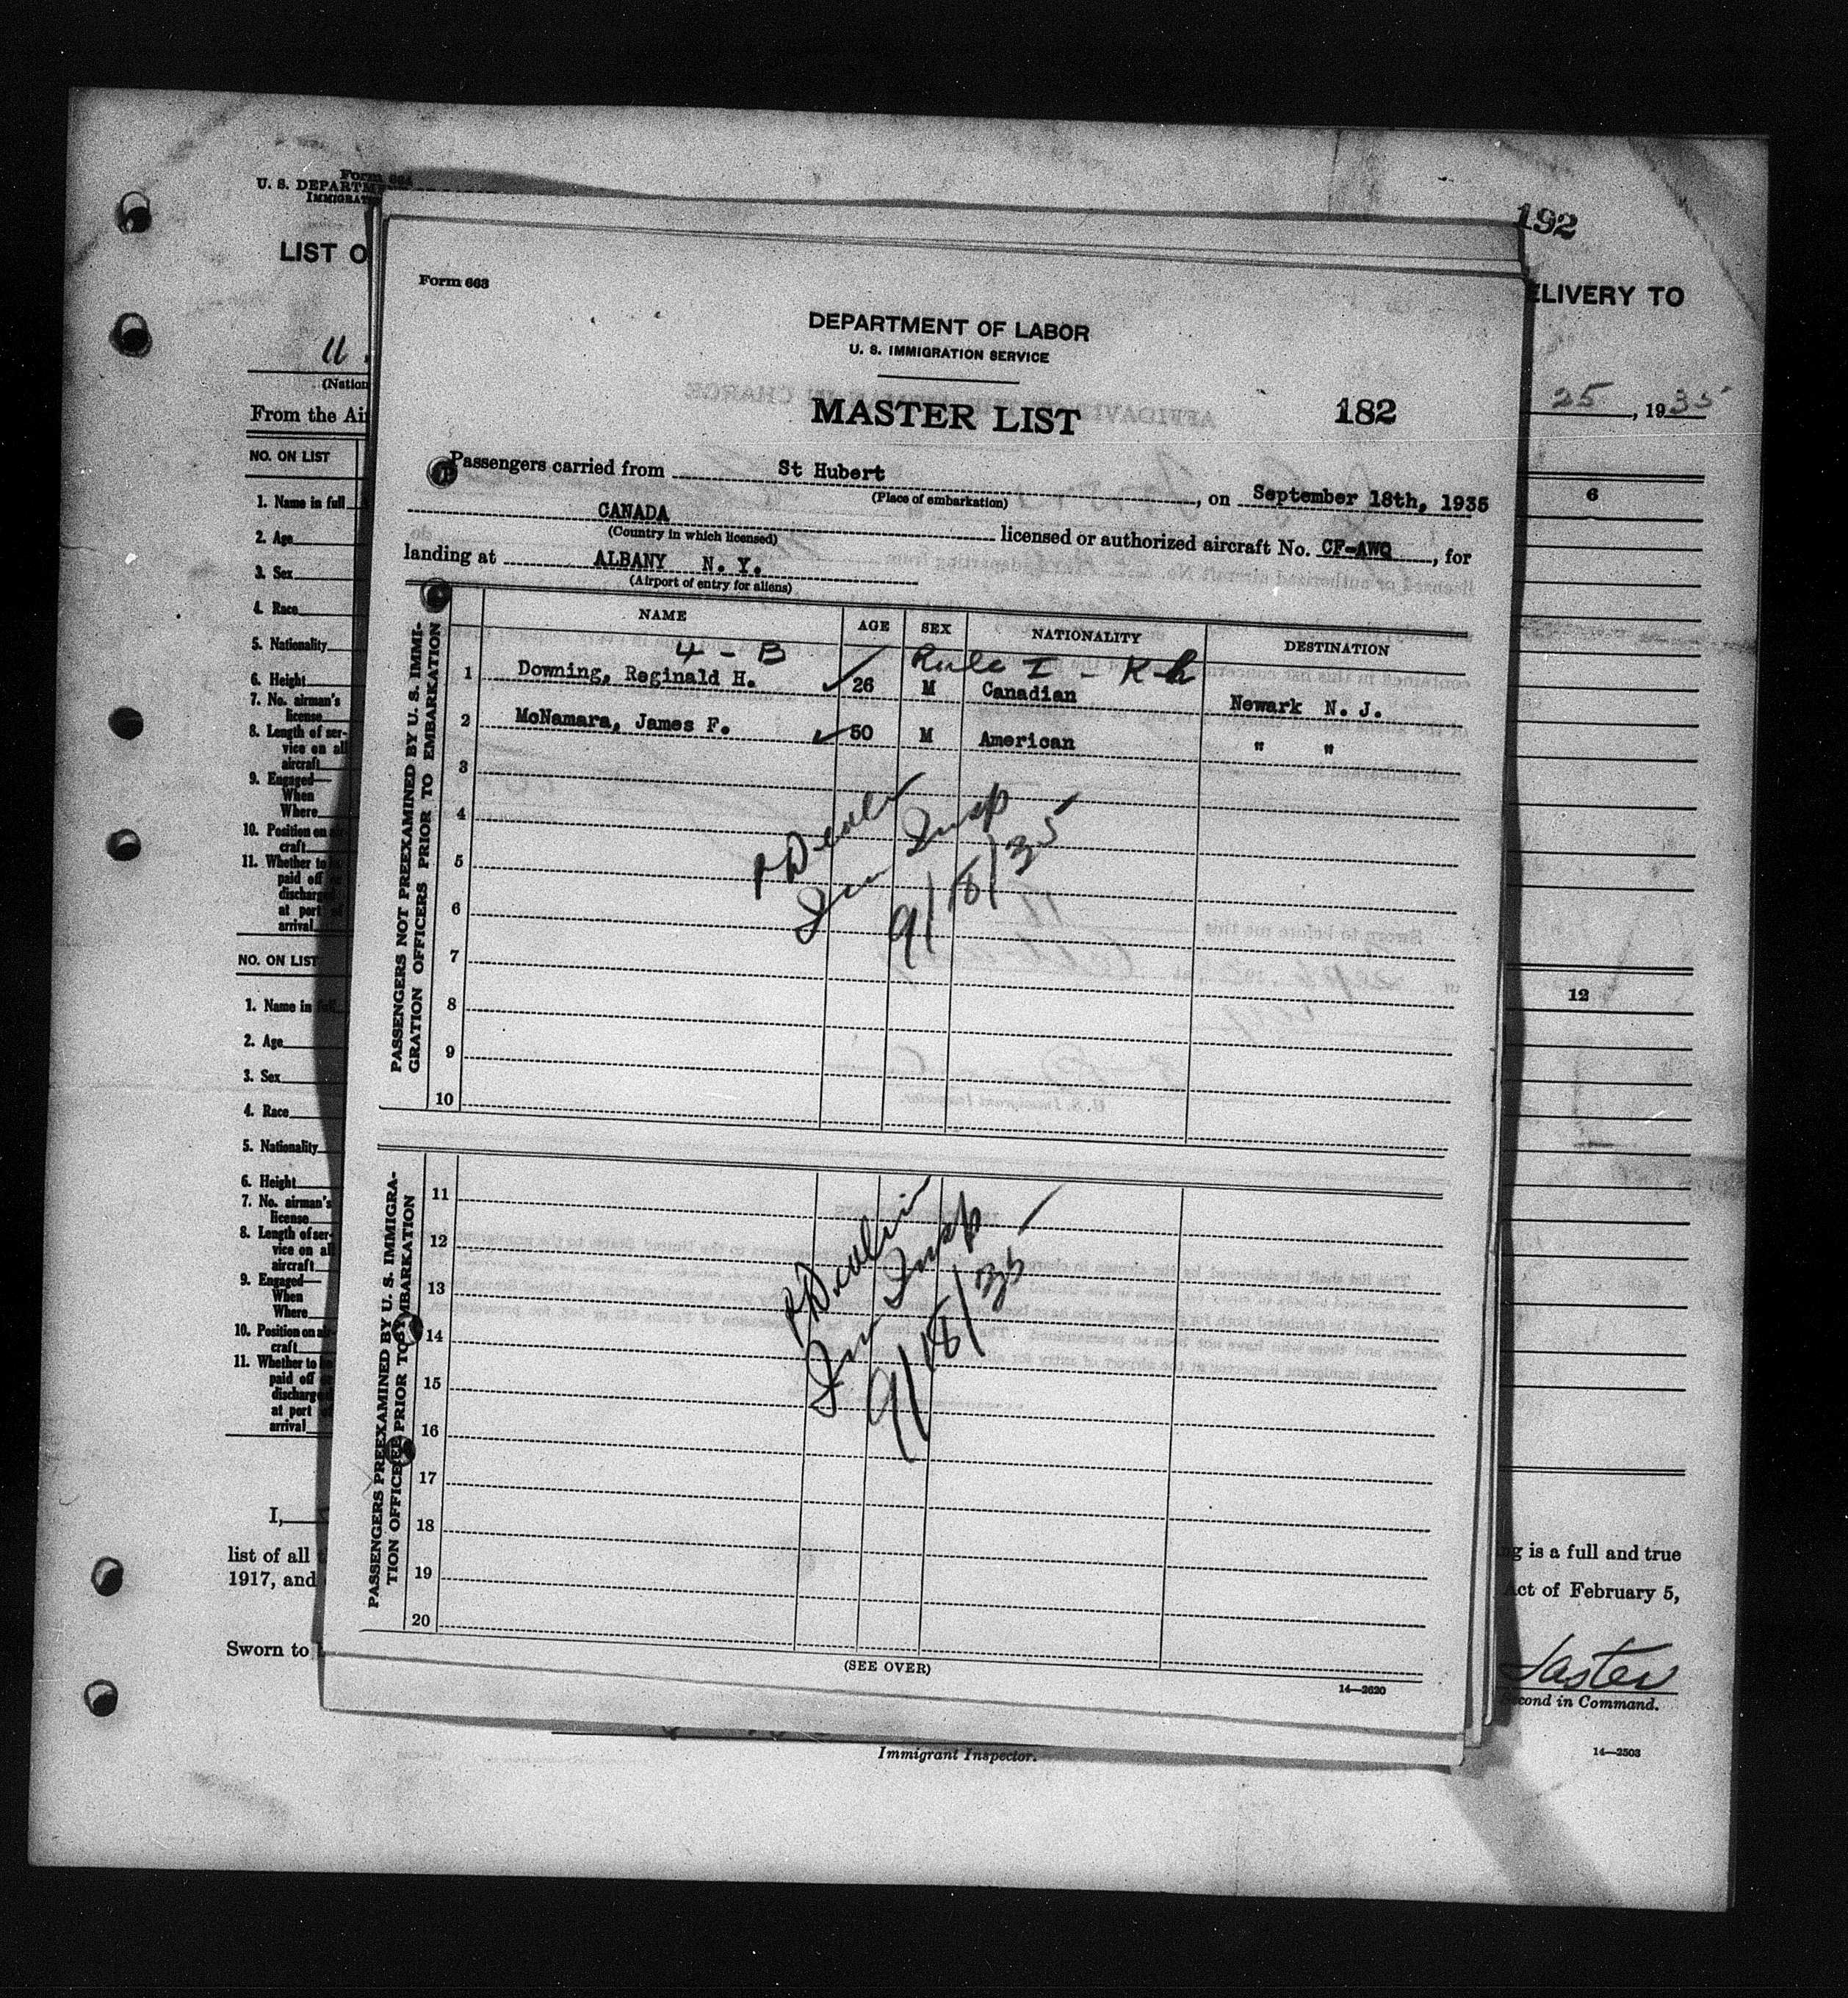 Form 664
U. S. DEPARTM
IMMIGRAT
192
LIST O
ELIVERY TO
U.
(Nation
25, 1935
From the Air
NO. ON LIST
6
1. Name in full
2. Age
3. Sex
4. Race
5. Nationality
6. Height
7. No. airman's
license
8. Length of ser-
vice on all
aircraft
9. Engaged—
When
Where
10. Position on air-
craft
11. Whether to be
paid off or
discharged
at port of
arrival
NO. ON LIST
12
1. Name in full
2. Age
3. Sex
4. Race
5. Nationality
6. Height
7. No. airman's
license
8. Length of ser-
vice on all
aircraft
9. Engaged—
When
Where
10. Position on air-
craft
11. Whether to be
paid off or
discharged
at port of
arrival
I,
list of all
ng is a full and true
1917, and
Act of February 5,
Sworn to b
Second in Command.
Immigrant Inspector.
14—2503
Form 663
DEPARTMENT OF LABOR
U. S. IMMIGRATION SERVICE
MASTER LIST
182
Passengers carried from St Hubert, on September 18th, 1935
(Place of embarkation)
CANADA licensed or authorized aircraft No. CF-AWQ, for
(Country in which licensed)
landing at ALBANY N. Y.
(Airport of entry for aliens)
NAME AGE SEX NATIONALITY DESTINATION
4 - B Rule I - K-h
PASSENGERS NOT PREEXAMINED BY U. S. IMMI-
GRATION OFFICERS PRIOR TO EMBARKATION
1 Downing, Reginald H. 26 M Canadian Newark N. J.
2 McNamara, James F. 50 M American " "
3
4
5
Imm Insp
9/18/35
6
7
8
9
10
PASSENGERS PREEXAMINED BY U. S. IMMIGRA-
TION OFFICERS PRIOR TO EMBARKATION
11
12
13
Imm Insp
9/18/35
14
15
16
17
18
19
20
(SEE OVER)
14—2620